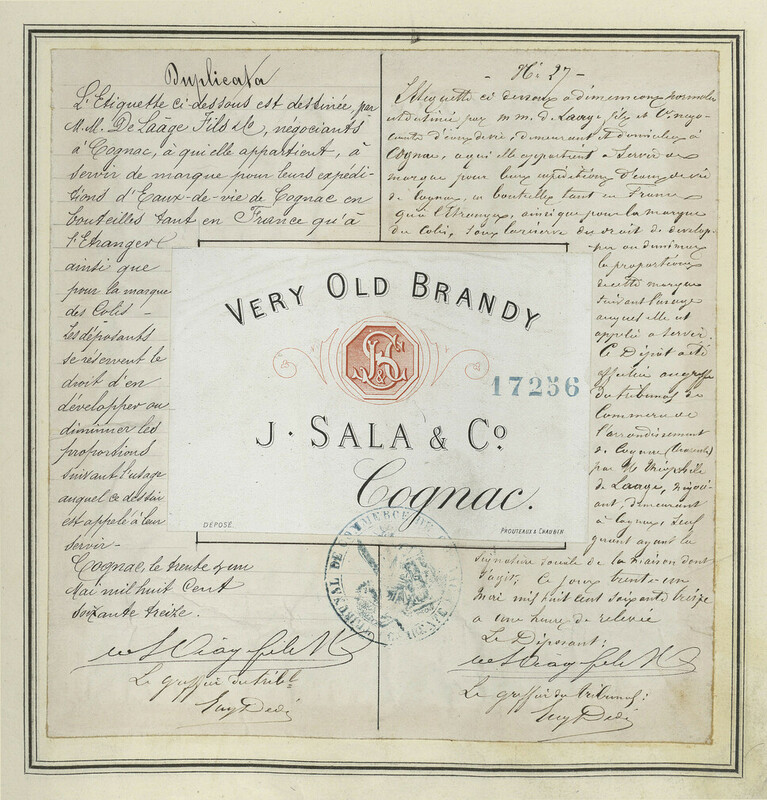 Duplicata
L'Etiquette ci-dessous est destinée, par
M.M. De Laâge Fils & C, négociants
à Cognac, à qui elle appartient, à
servir de marque pour leurs expédi-
tions d'Eaux-de-vie de Cognac en
bouteilles tant en France qu'à
l'Etranger
ainsi que
pour la marque
des Colis -
Les déposants
se réservent le
droit d'en
développer ou
diminuer les
proportions
suivant l'usage
auquel ce dessin
est appelé à leur
servir -
Cognac, le trente & un
Mai mil huit cent
soixante treize.
Le greffier du trib^l
VERY OLD BRANDY
17256
J. SALA & Co.
Cognac.
DÉPOSÉ.
PROUTEAUX & CHAUBER
TRIBUNAL DE COMMERCE DE
- No 27 -
L'Etiquette ci dessous à dimensions normales
est destinée par m m. de Laage fils et Cie négo-
ciants d'eaux de vie, demeurant et domiciliés à
Cognac, a qui elle appartient a Servir de
marque pour leurs expéditions d'eaux de vie
de Cognac, en bouteilles tant en France
qu'à l'Etranger, ainsi que pour la marque
du Colis, sous la réserve des droit de develop-
per ou diminuer
la proportions
de cette marque
suivant l'usage
auquel elle est
appelée a servir.
Ce Dépôt a été
effectué au greffe
du tribunal de
Commerce de
l'arrondissement
de Cognac (Charente)
par M
de Laage, négoci-
ant, demeurant
à Cognac,
ayant la
signature sociale de la maison dont
s'agit. Ce jour trente-un
mai mil huit cent soixante treize
a une heure de relevée
Le Déposant:
Le greffier du tribunal: